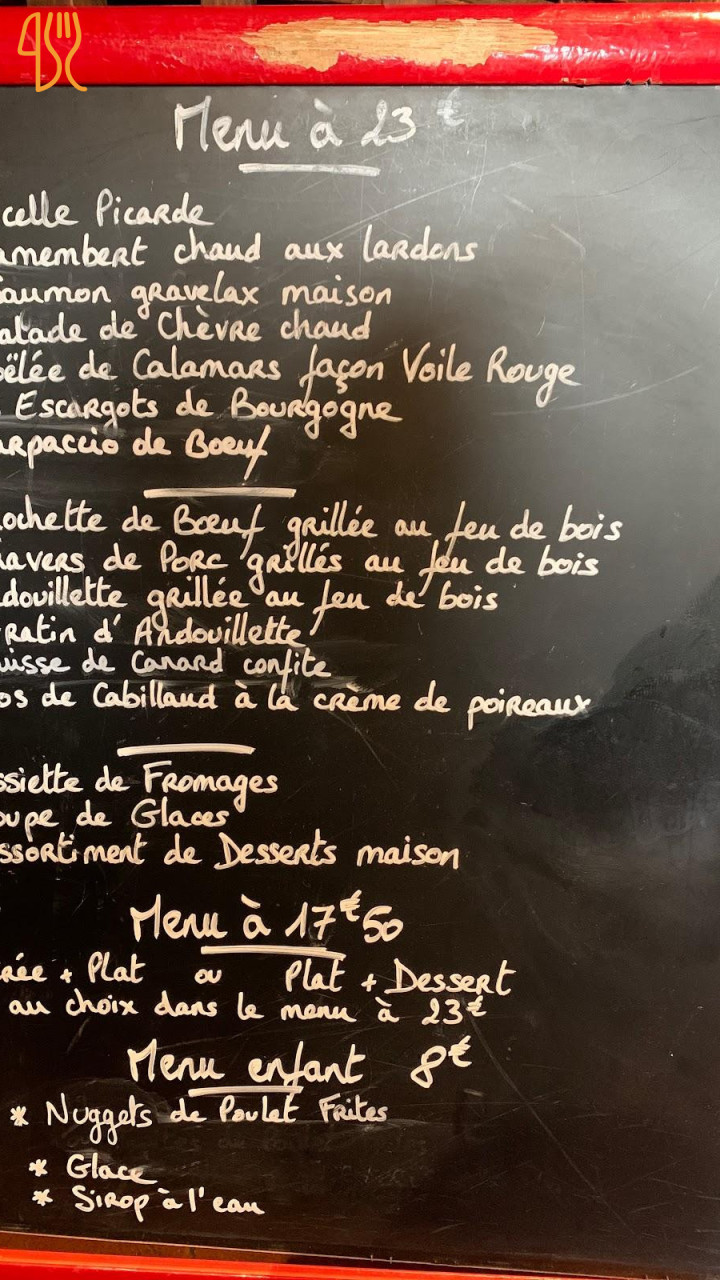 Menu à 23 €
celle Picarde
amembert chaud aux lardons
aumon gravelax maison
alade de Chèvre chaud
oëlée de Calamars façon Voile Rouge
Escargots de Bourgogne
arpaccio de Boeuf
ochette de Boeuf grillée au feu de bois
ravers de Porc grillés au feu de bois
douillette grillée au feu de bois
Ratin d'Andouillette
uisse de Canard confite
os de Cabillaud à la creme de poireaux
ssiette de Fromages
oupe de Glaces
ssortiment de Desserts maison
Menu à 17€50
rée + Plat ou Plat + Dessert
au choix dans le menu à 23€
Menu enfant 8€
* Nuggets de Poulet Frites
* Glace
* Sirop à l'eau